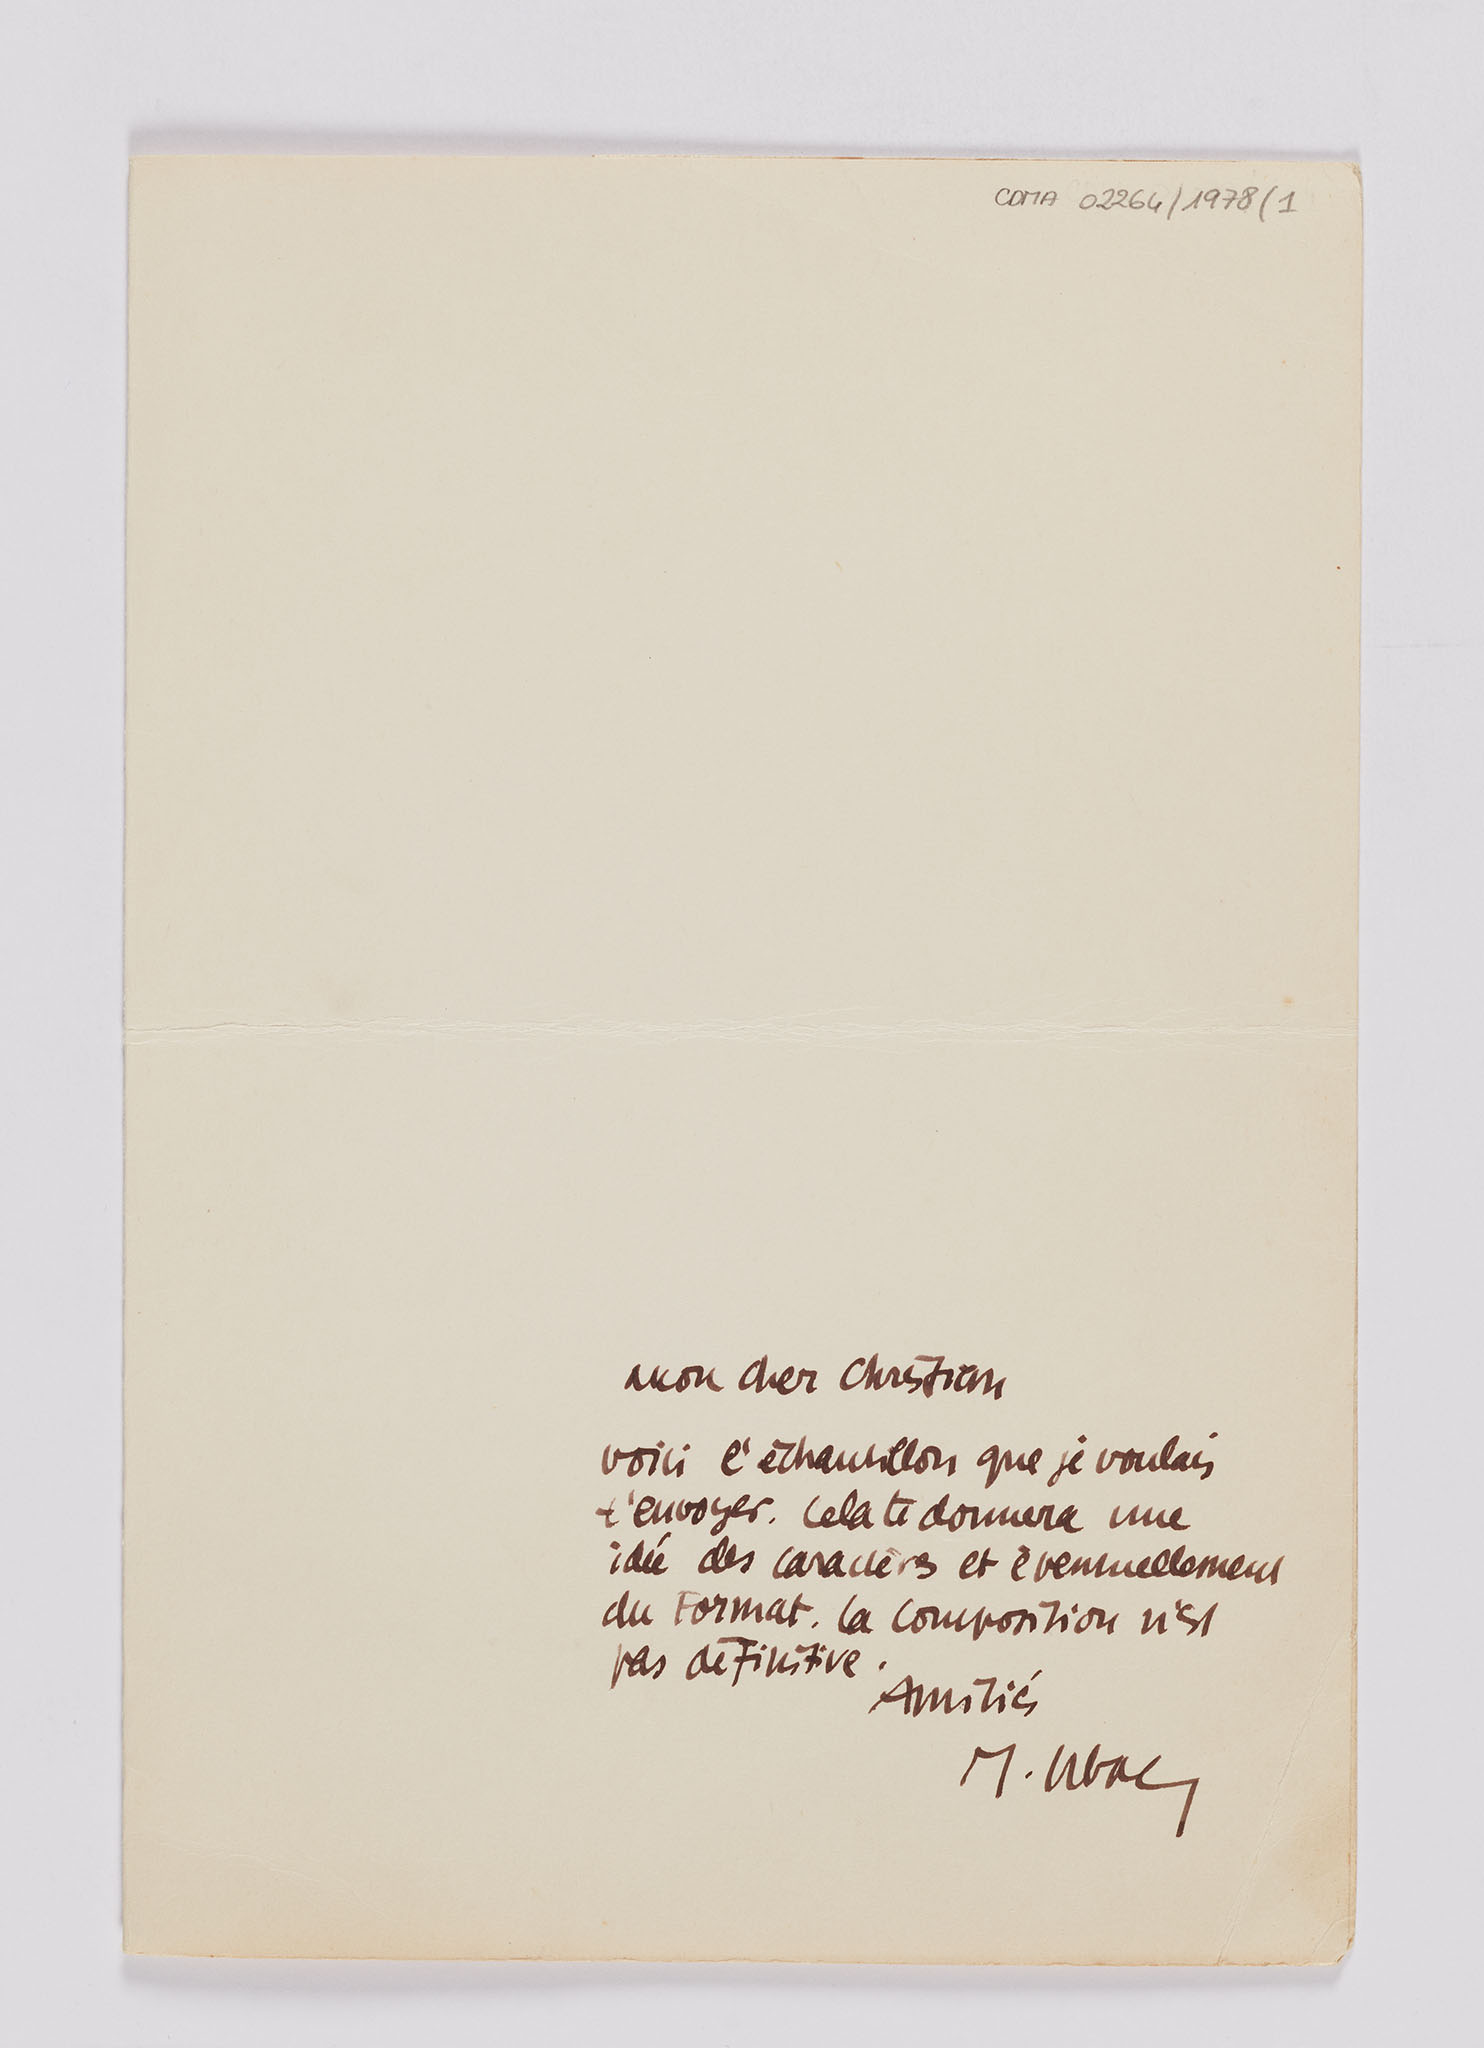 CDMA 02264/1978/1
Mon cher Christian
voici l'échantillon que je voulais
t'envoyer. Cela te donnera une
idée des caractères et éventuellement
du Format. La composition n'est
pas définitive.
Amitiés
M. Ubac